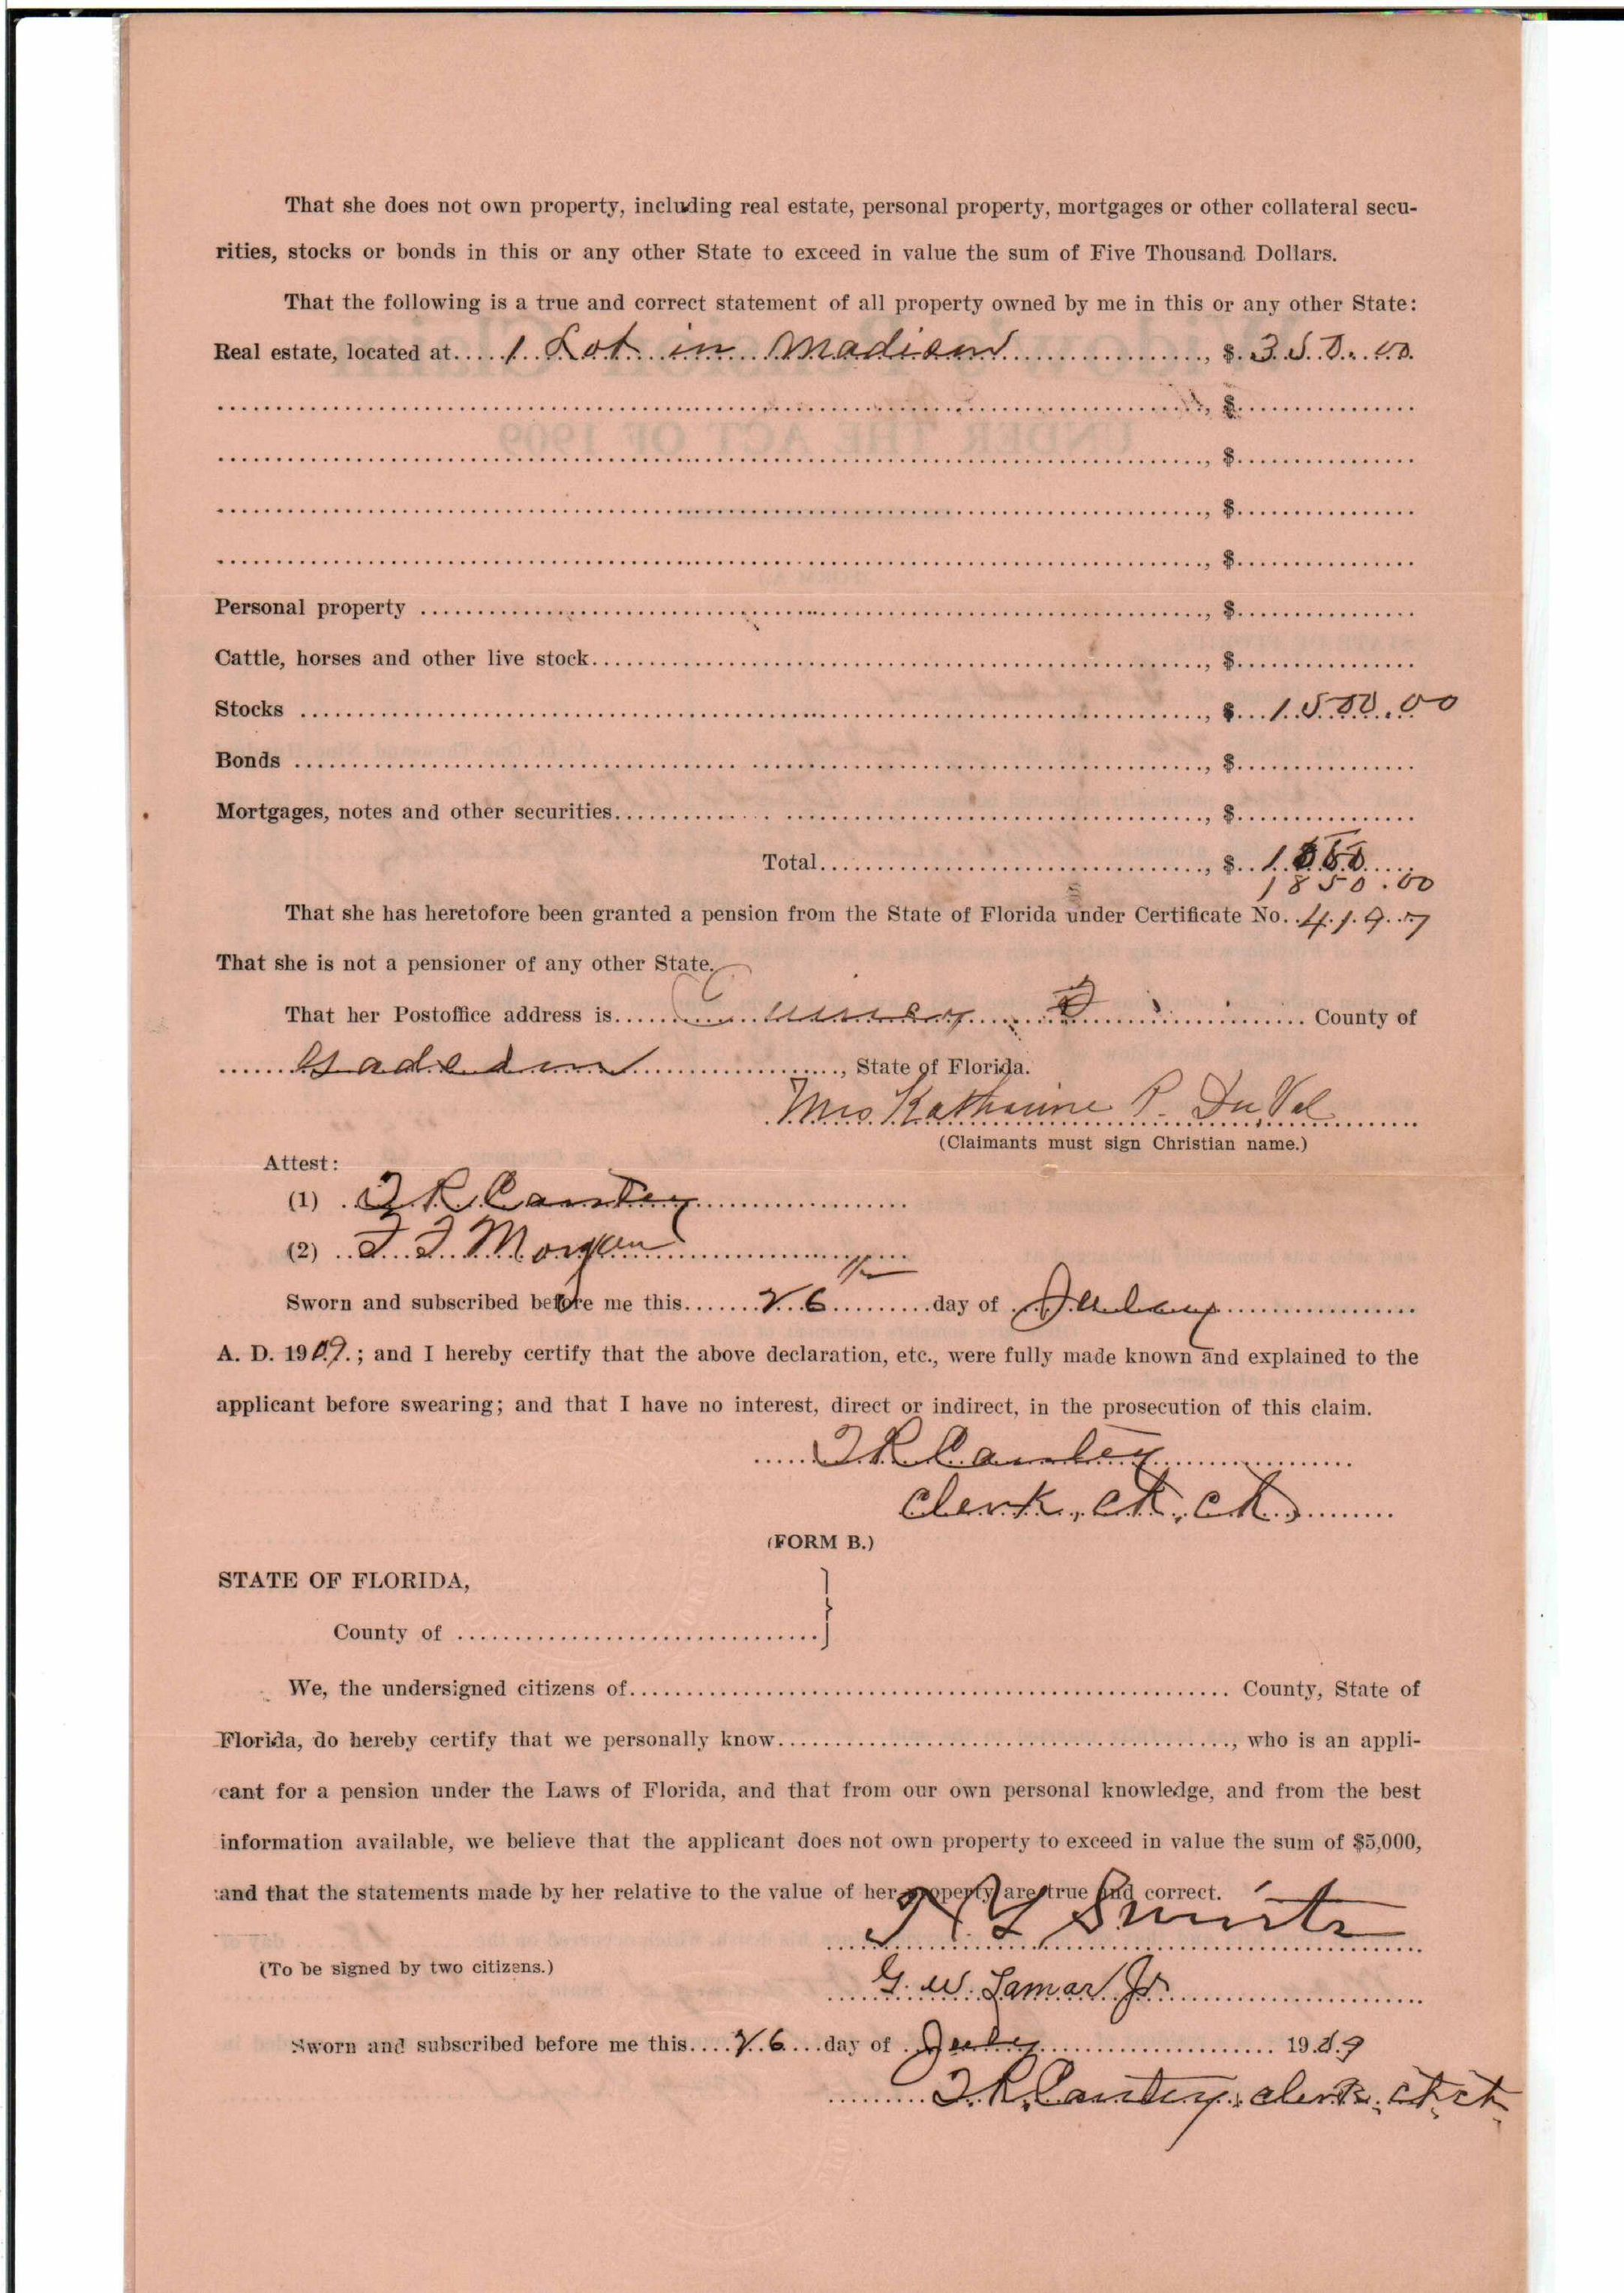 That she does not own property, including real estate, personal property, mortgages or other collateral secu-
rities, stocks or bonds in this or any other State to exceed in value the sum of Five Thousand Dollars.
That the following is a true and correct statement of all property owned by me in this or any other State:
Real estate, located at 1 Lot in Madison, $ 350.00
, $
, $
, $
, $
Personal property , $
Cattle, horses and other live stock , $
Stocks , $ 1500.00
Bonds , $
Mortgages, notes and other securities , $
Total , $
1850.00
That she has heretofore been granted a pension from the State of Florida under Certificate No. 4197
That she is not a pensioner of any other State.
That her Postoffice address is Quincy County of
Gadsden, State of Florida.
Mrs Katharine P. DuVal
(Claimants must sign Christian name.)
Attest:
(1) Cantey
(2) Morgan
Sworn and subscribed before me this 26 day of July
A. D. 1909.; and I hereby certify that the above declaration, etc., were fully made known and explained to the
applicant before swearing; and that I have no interest, direct or indirect, in the prosecution of this claim.
Cantey
Clerk, Ct, Ct,
(FORM B.)
STATE OF FLORIDA,
County of
We, the undersigned citizens of County, State of
Florida, do hereby certify that we personally know , who is an appli-
cant for a pension under the Laws of Florida, and that from our own personal knowledge, and from the best
information available, we believe that the applicant does not own property to exceed in value the sum of $5,000,
and that the statements made by her relative to the value of her property are true and correct.
(To be signed by two citizens.)
G. W. Lamar Jr
Sworn and subscribed before me this 26 day of July 1909
Cantey, clerk, Ct, ct